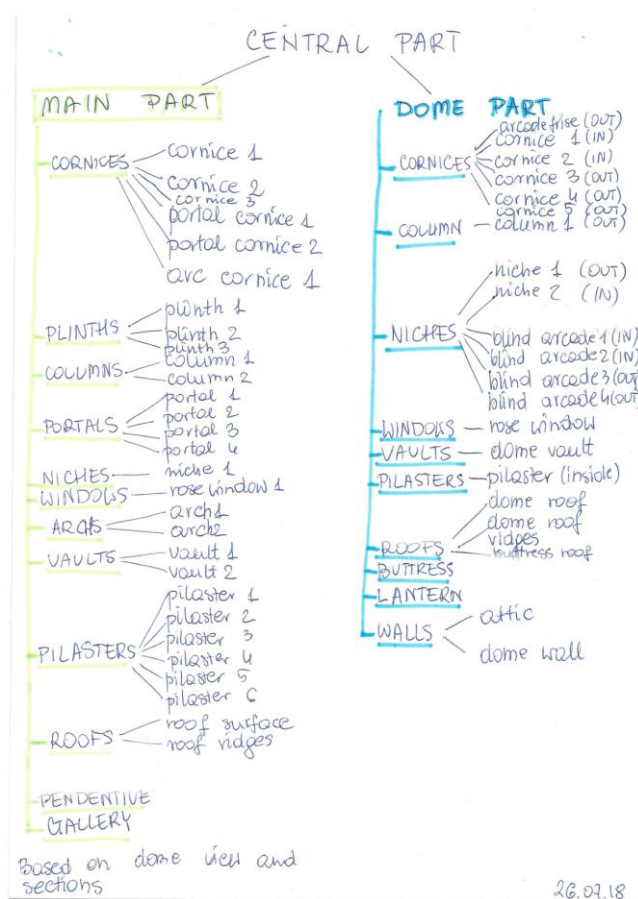 CENTRAL PART
MAIN PART
CORNICES
cornice 1
cornice 2
cornice 3
portal cornice 1
portal cornice 2
arc cornice 1
PLINTHS
plinth 1
plinth 2
plinth 3
COLUMNS
column 1
column 2
PORTALS
portal 1
portal 2
portal 3
portal 4
NICHES
niche 1
WINDOWS
rose window 1
ARCHS
arch1
arch2
VAULTS
vault 1
vault 2
PILASTERS
pilaster 1
pilaster 2
pilaster 3
pilaster 4
pilaster 5
pilaster 6
ROOFS
roof surface
roof ridges
PENDENTIVE
GALLERY
Based on dome view and
sections
DOME PART
CORNICES
arcade frise (OUT)
cornice 1 (IN)
cornice 2 (IN)
cornice 3 (OUT)
cornice 4 (OUT)
cornice 5 (OUT)
COLUMN
column 1 (OUT)
NICHES
niche 1 (OUT)
niche 2 (IN)
blind arcade 1 (IN)
blind arcade 2 (IN)
blind arcade 3 (OUT)
blind arcade 4 (OUT)
WINDOWS
rose window
VAULTS
dome vault
PILASTERS
pilaster (inside)
ROOFS
dome roof
dome roof
ridges
buttress roof
BUTTRESS
LANTERN
WALLS
attic
dome wall
26.07.18